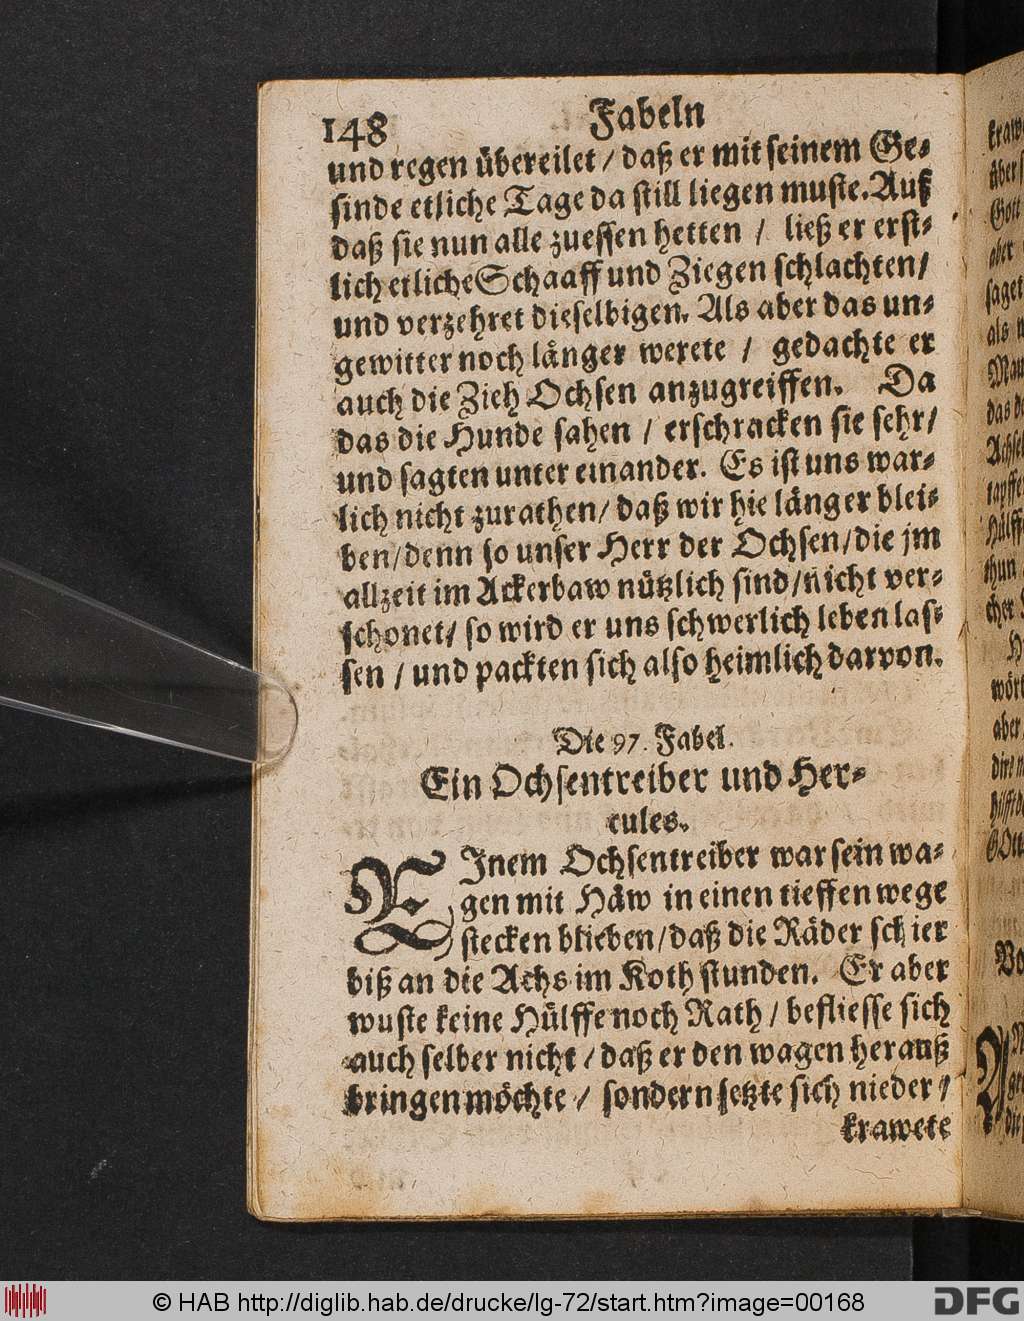 148 Fabeln
und regen übereilet / daß er mit seinem Ge-
sinde etliche Tage da still liegen muste. Auff
daß sie nun alle zuessen hetten / ließ er erst-
lich etliche Schaaff und Ziegen schlachten /
und verzehret dieselbigen. Als aber das un-
gewitter noch länger werete / gedachte er
auch die Zieh Ochsen anzugreiffen. Da
das die Hunde sahen / erschracken sie sehr /
und sagten unter einander. Es ist uns war-
lich nicht zurathen / daß wir hie länger blei-
ben / denn so unser Herr der Ochsen / die jm
allzeit im Ackerbaw nützlich sind / nicht ver-
schonet / so wird er uns schwerlich leben las-
sen / und packten sich also heimlich darvon.
Die 97. Fabel.
Ein Ochsentreiber und Her-
cules.
EInem Ochsentreiber war sein wa-
gen mit Häw in einen tieffen wege
stecken blieben / daß die Räder schier
biß an die Achs im Koth stunden. Er aber
wuste keine Hülffe noch Rath / befliesse sich
auch selber nicht / daß er den wagen herauß
bringen möchte / sondern setzte sich nieder /
krawete
© HAB http://diglib.hab.de/drucke/lg-72/start.htm?image=00168
DFG